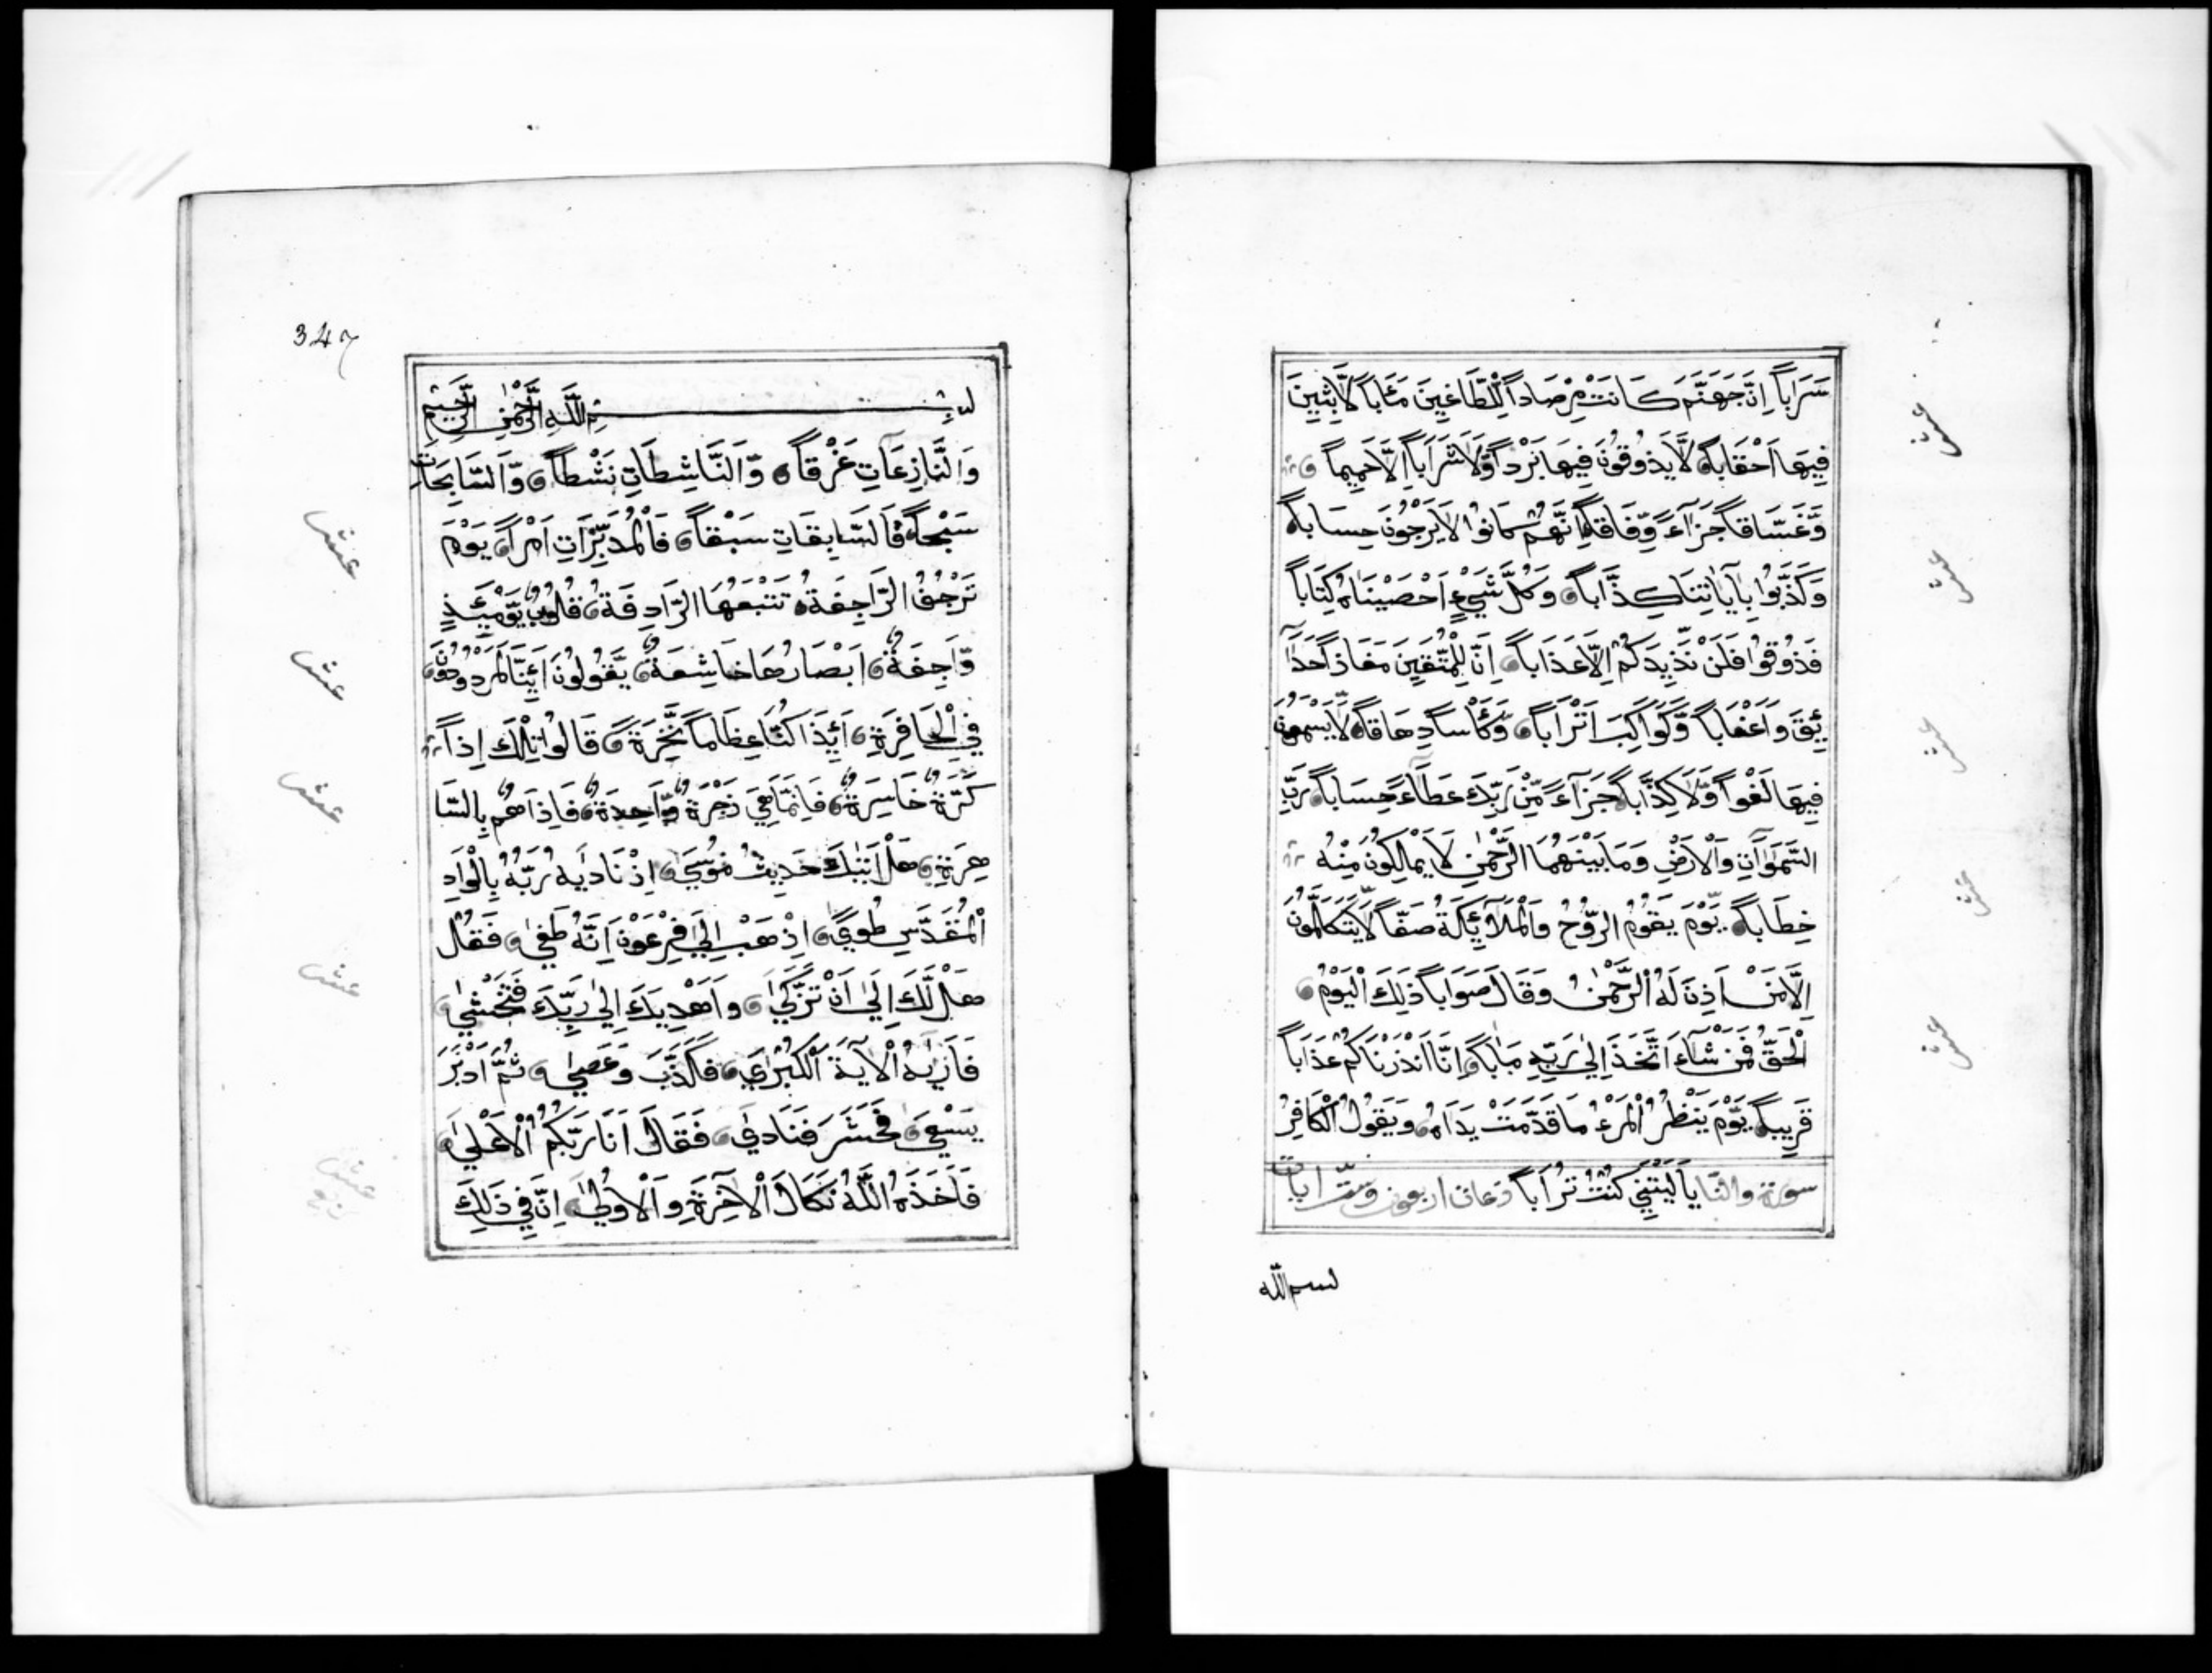 سَرَاباً اِنَّ جَهَنَّمَ كَانَتْ مِرْصَاداً لِلطَّاغِينَ مَئَاباً لَّابِثِينَ
فِيهَا اَحْقَاباً لَّا يَذُوقُونَ فِيهَا بَرْداً وَّلَا شَرَاباً اِلَّا حَمِيماً
وَّغَسَّاقاً جَزَآءً وِّفَاقاً اِنَّهُمْ كَانُوا لَا يَرْجُونَ حِسَاباً
وَكَذَّبُوا بِآيَاتِنَا كِذَّاباً وَكُلَّ شَيْءٍ اَحْصَيْنَاهُ كِتَاباً
فَذُوقُوا فَلَنْ نَّزِيدَكُمْ اِلَّا عَذَاباً اِنَّ لِلْمُتَّقِينَ مَفَازاً حَدَآ
ئِقَ وَاَعْنَاباً وَّكَوَاكِبَ اَتْرَاباً وَّكَأْساً دِهَاقاً لَّا يَسْمَعُونَ
فِيهَا لَغْواً وَّلَا كِذَّاباً جَزَآءً مِّنْ رَبِّكَ عَطَآءً حِسَاباً رَبِّ
السَّمَوَاتِ وَالْاَرْضِ وَمَا بَيْنَهُمَا الرَّحْمٰنِ لَا يَمْلِكُونَ مِنْهُ
خِطَاباً يَّوْمَ يَقُومُ الرُّوْحُ وَالْمَلَآئِكَةُ صَفّاً لَّا يَتَكَلَّمُونَ
اِلَّا مَنْ اَذِنَ لَهُ الرَّحْمٰنُ وَقَالَ صَوَاباً ذَلِكَ الْيَوْمُ
الْحَقُّ فَمَنْ شَآءَ اتَّخَذَ اِلىٰ رَبِّهِ مَاٰباً اِنَّا اَنْذَرْنَاكُمْ عَذَاباً
قَرِيباً يَّوْمَ يَنْظُرُ الْمَرْءُ مَا قَدَّمَتْ يَدَاهُ وَيَقُولُ الْكَافِرُ
سورة والنا يَا لَيْتَنِي كُنْتُ تُرَاباً زعات اربعون وست ايات
بسم الله
عشر
عشر
عشر
عشر
عشر
347
بِسْمِ اللَّهِ الرَّحْمٰنِ الرَّحِيمِ
وَالنَّازِعَاتِ غَرْقاً وَّالنَّاشِطَاتِ نَشْطاً وَّالسَّابِحَاتِ
سَبْحاً فَالسَّابِقَاتِ سَبْقاً فَالْمُدَبِّرَاتِ اَمْراً يَوْمَ
تَرْجُفُ الرَّاجِفَةُ تَتْبَعُهَا الرَّادِفَةُ قُلُوبٌ يَّوْمَئِذٍ
وَّاجِفَةٌ اَبْصَارُهَا خَاشِعَةٌ يَّقُولُونَ اَئِنَّا لَمَرْدُودُونَ
فِي الْحَافِرَةِ اَئِذَا كُنَّا عِظَاماً نَّخِرَةً قَالُوا تِلْكَ اِذاً
كَرَّةٌ خَاسِرَةٌ فَاِنَّمَا هِيَ زَجْرَةٌ وَّاحِدَةٌ فَاِذَا هُمْ بِالسَّا
هِرَةِ هَلْ اَتٰىكَ حَدِيثُ مُوسَىٰ اِذْ نَادٰيهُ رَبُّهُ بِالْوَادِ
الْمُقَدَّسِ طُوىً اِذْهَبْ اِلَى فِرْعَوْنَ اِنَّهُ طَغىٰ فَقُلْ
هَلْ لَّكَ اِلىٰ اَنْ تَزَكّٰى وَاَهْدِيَكَ اِلىٰ رَبِّكَ فَتَخْشىٰ
فَاَرٰيهُ الْاٰيَةَ الْكُبْرٰى فَكَذَّبَ وَعَصىٰ ثُمَّ اَدْبَرَ
يَسْعىٰ فَحَشَرَ فَنَادىٰ فَقَالَ اَنَا رَبُّكُمُ الْاَعْلىٰ
فَاَخَذَهُ اللَّهُ نَكَالَ الْاٰخِرَةِ وَالْاُولىٰ اِنَّ فِي ذَلِكَ
عشر
عشر
عشر
عشر
عشر